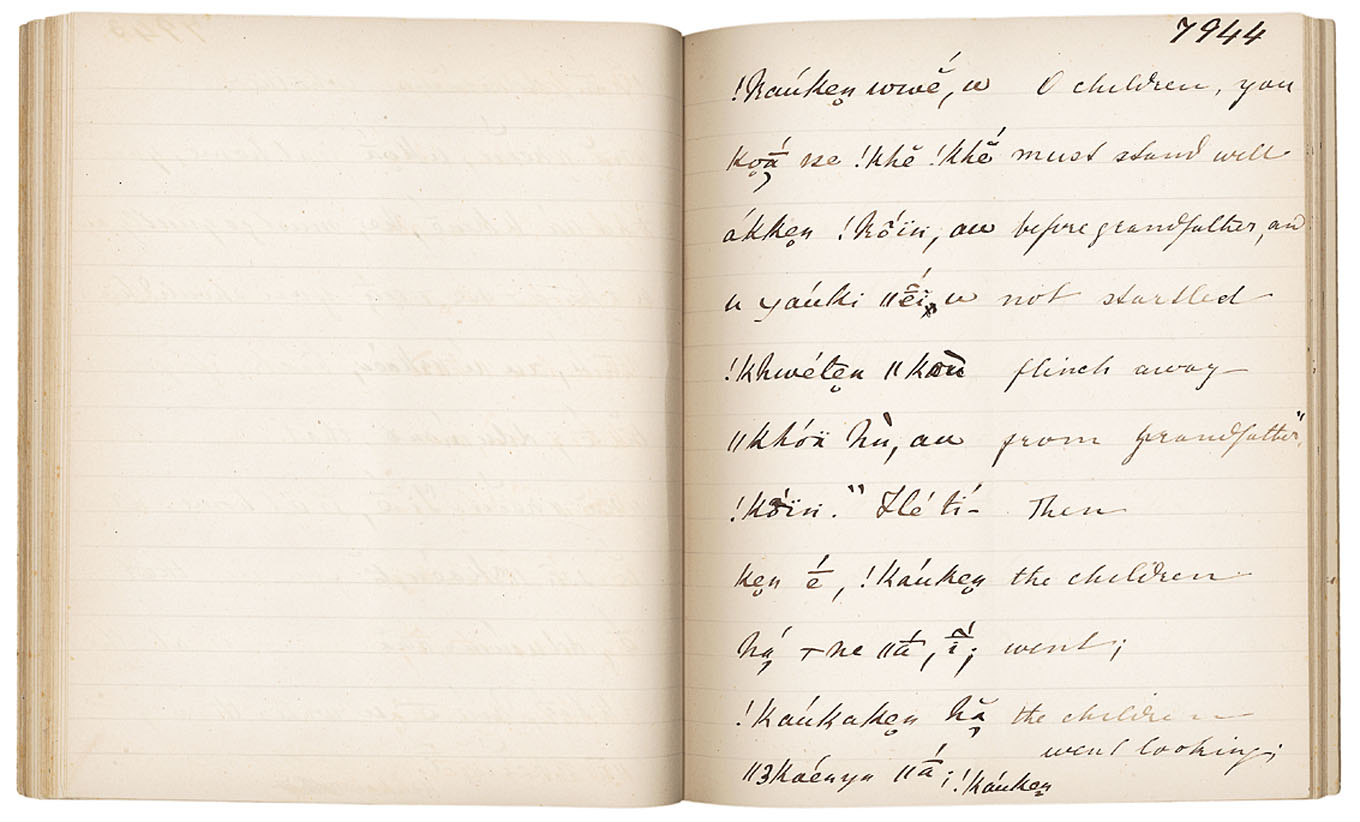 7944
!kaúken wwĕ́, u O children, you
koā́ se !khĕ !khĕ́ must stand well
ákken !kṍïn, au before grandfather, and
u yaúki ǁḗĭ, u not startled
!khwéten ǁkaù flinch away
ǁkhóä hù, au from grandfather".
!kṍïn." Hé tí- Then
ken é̄, !kaúken the children
há ne ǁā́, ī́; went;
!kaúkaken hă the children
went looking;
ǁkáenya ǁā́; !kaúken